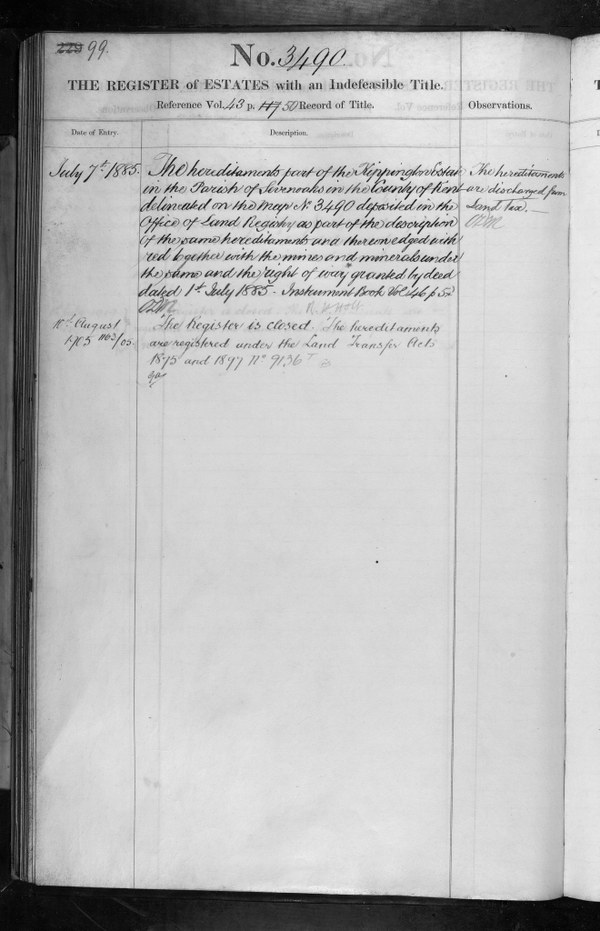 223 99.
No. 3490
THE REGISTER of ESTATES with an Indefeasible Title.
Reference Vol. 43 p. 117 50 Record of Title.
Observations.
Date of Entry.
Description.
July 7th 1885.
The hereditaments part of the Kippington Estate
in the Parish of Sevenoaks in the County of Kent
delineated on the map No 3490 deposited in the
Office of Land Registry as part of the description
of the same hereditaments and thereon edged with
red together with the mines and minerals under
the same and the right of way granted by deed
dated 1st July 1885. Instrument Book Vol 46 p
The hereditaments
are discharged from
Land Tax.
10th August
1905
The Register is closed. The hereditaments
are registered under the Land Transfer Acts
1875 and 1897 No 9136